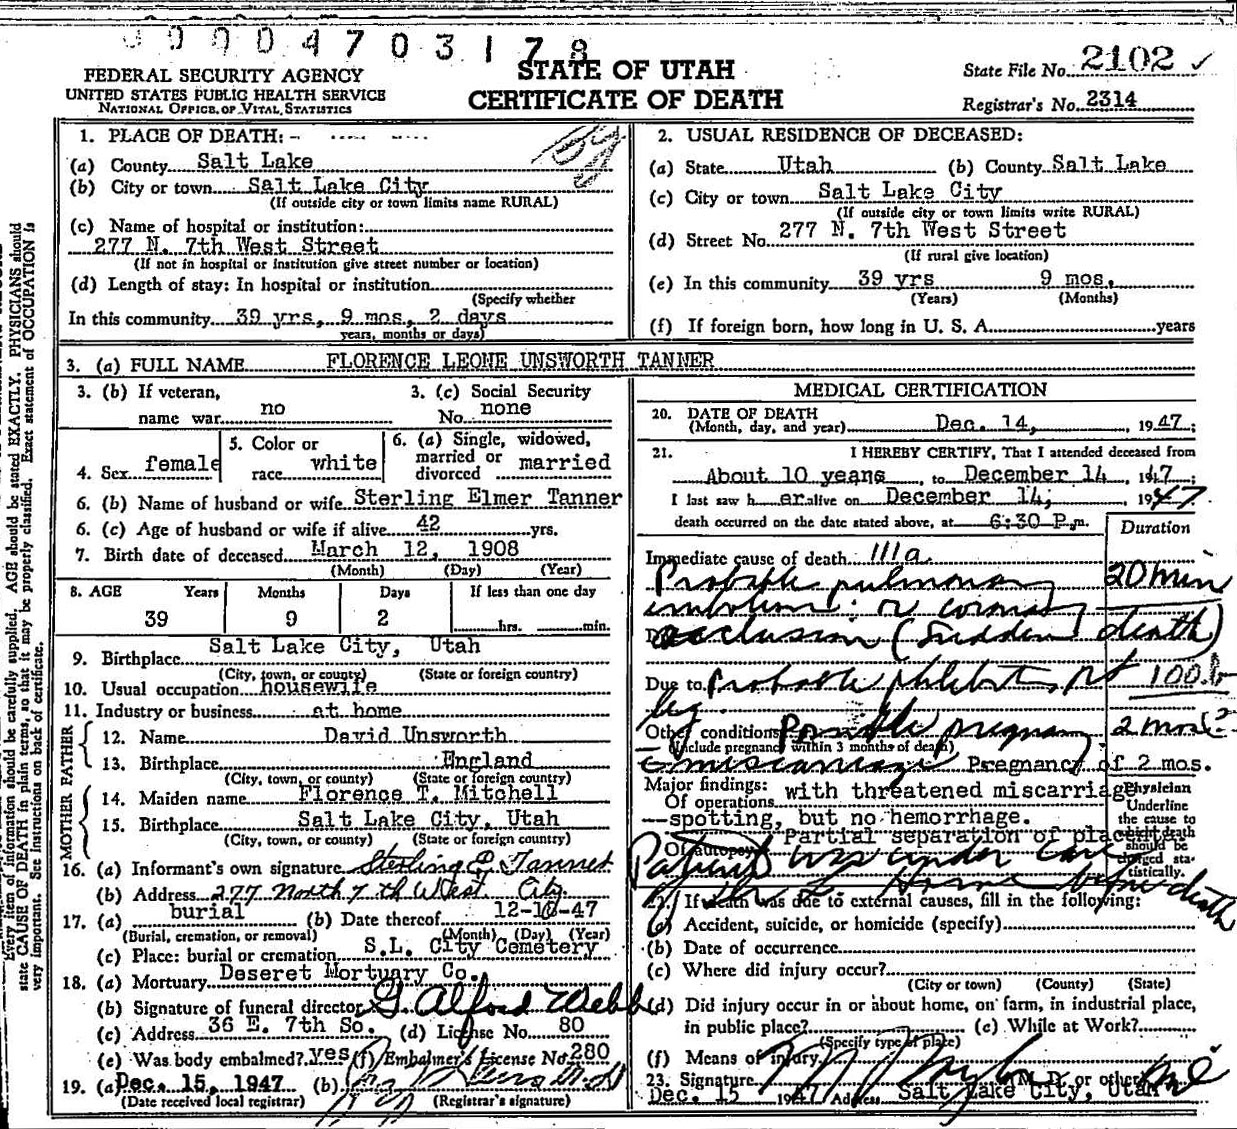 0 0 0 0 4 7 0 3 1 7 8
FEDERAL SECURITY AGENCY
UNITED STATES PUBLIC HEALTH SERVICE
NATIONAL OFFICE OF VITAL STATISTICS
STATE OF UTAH
CERTIFICATE OF DEATH
State File No. 2102 ✓
Registrar's No. 2314
1. PLACE OF DEATH: -
(a) County Salt Lake
(b) City or town Salt Lake City
(If outside city or town limits name RURAL)
(c) Name of hospital or institution:
277 N. 7th West Street
(If not in hospital or institution give street number or location)
(d) Length of stay: In hospital or institution
(Specify whether
In this community 39 yrs, 9 mos, 2 days
years, months or days)
2. USUAL RESIDENCE OF DECEASED:
(a) State Utah (b) County Salt Lake
(c) City or town Salt Lake City
(If outside city or town limits write RURAL)
(d) Street No. 277 N. 7th West Street
(If rural give location)
(e) In this community 39 yrs 9 mos.
(Years) (Months)
(f) If foreign born, how long in U. S. A. years
3. (a) FULL NAME FLORENCE LEONE UNSWORTH TANNER
3. (b) If veteran, name war no
3. (c) Social Security No. none
4. Sex female
5. Color or race white
6. (a) Single, widowed, married or divorced married
6. (b) Name of husband or wife Sterling Elmer Tanner
6. (c) Age of husband or wife if alive 42 yrs.
7. Birth date of deceased March 12, 1908
(Month) (Day) (Year)
8. AGE Years Months Days If less than one day
39 9 2 hrs. min.
9. Birthplace Salt Lake City, Utah
(City, town, or county) (State or foreign country)
10. Usual occupation housewife
11. Industry or business at home
FATHER
12. Name David Unsworth
13. Birthplace England
(City, town, or county) (State or foreign country)
MOTHER
14. Maiden name Florence T. Mitchell
15. Birthplace Salt Lake City, Utah
(City, town, or county) (State or foreign country)
16. (a) Informant's own signature Sterling E. Tanner
(b) Address 277 North 7th West City
17. (a) burial (b) Date thereof 12-1-47
(Burial, cremation, or removal) (Month) (Day) (Year)
(c) Place: burial or cremation S.L. City Cemetery
18. (a) Mortuary Deseret Mortuary Co.
(b) Signature of funeral director G. Alford Webb
(c) Address 36 E. 7th So. (d) License No. 80
(e) Was body embalmed? yes (f) Embalmer's License No. 280
19. (a) Dec. 15, 1947 (b)
(Date received local registrar) (Registrar's signature)
MEDICAL CERTIFICATION
20. DATE OF DEATH
(Month, day, and year) Dec. 14, 1947;
21. I HEREBY CERTIFY, That I attended deceased from
About 10 years, to December 14, 1947;
I last saw her alive on December 14; 1947
death occurred on the date stated above, at 6:30 P.m.
Duration
Immediate cause of death 111a
Probable pulmonary 20 min
embolism: or coronary
occlusion (Sudden death)
Due to Probable phlebitis, Rt 100b
leg.
Other conditions Possible pregnancy 2 mos?
(Include pregnancy within 3 months of death)
miscarriage Pregnancy of 2 mos.
Major findings: with threatened miscarriage
Of operations —spotting, but no hemorrhage.
Of autopsy Partial separation of placenta
Physician
Underline
the cause to
which death
should be
charged sta-
tistically.
Patient was under care
Home before death
22. If death was due to external causes, fill in the following:
(a) Accident, suicide, or homicide (specify)
(b) Date of occurrence
(c) Where did injury occur?
(City or town) (County) (State)
(d) Did injury occur in or about home, on farm, in industrial place,
in public place? (e) While at Work?
(Specify type of place)
(f) Means of injury
23. Signature (M. D. or other)
Dec. 15 1947 Address Salt Lake City, Utah
Every item of information should be carefully supplied. AGE should be stated EXACTLY. PHYSICIANS should
state CAUSE OF DEATH in plain terms, so that it may be properly classified. Exact statement of OCCUPATION is
very important. See instructions on back of certificate.